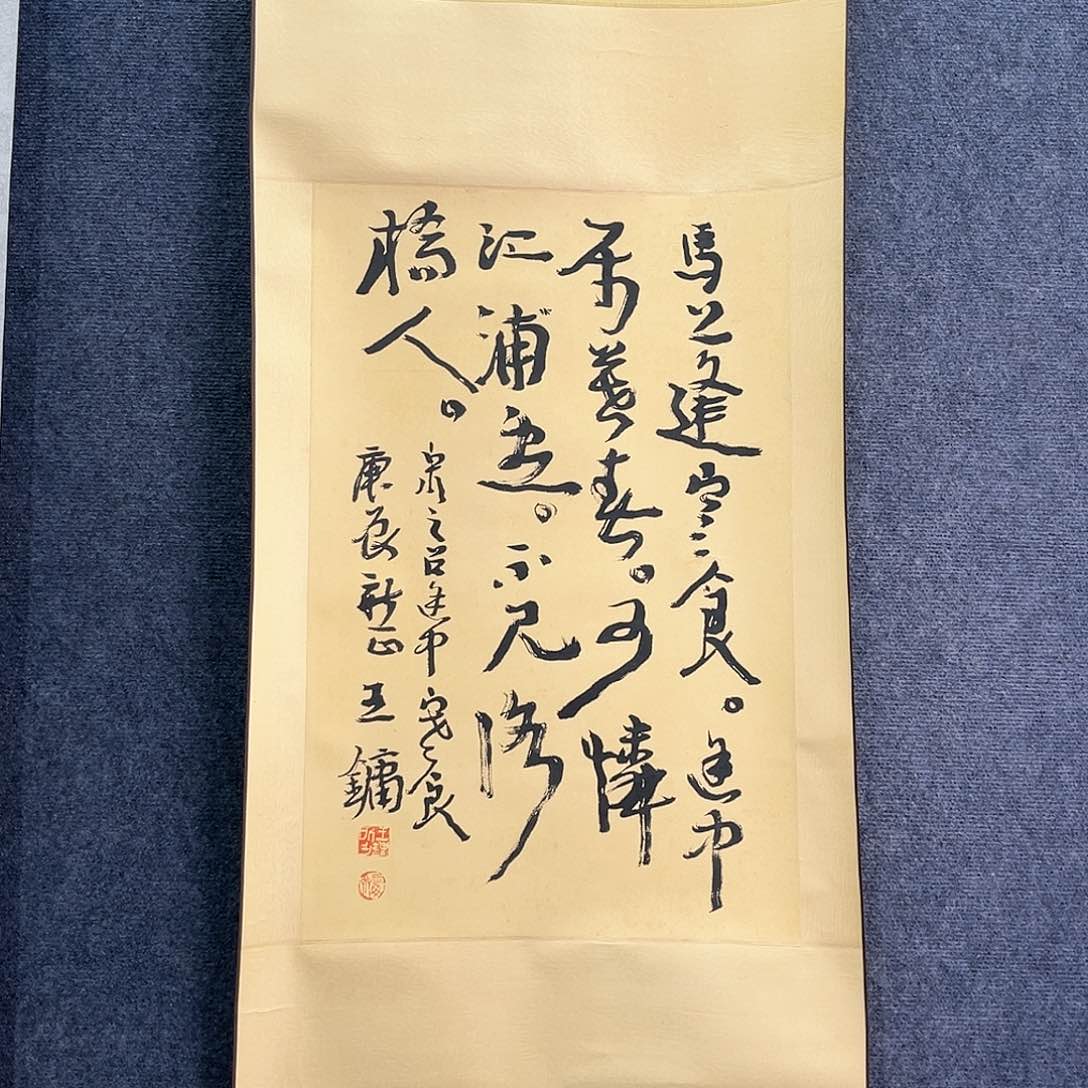 馬上逢寒食。途中
属暮春。可憐
江浦望。不見洛
橋人。
宋之问途中寒食
庚辰新正 王鏞